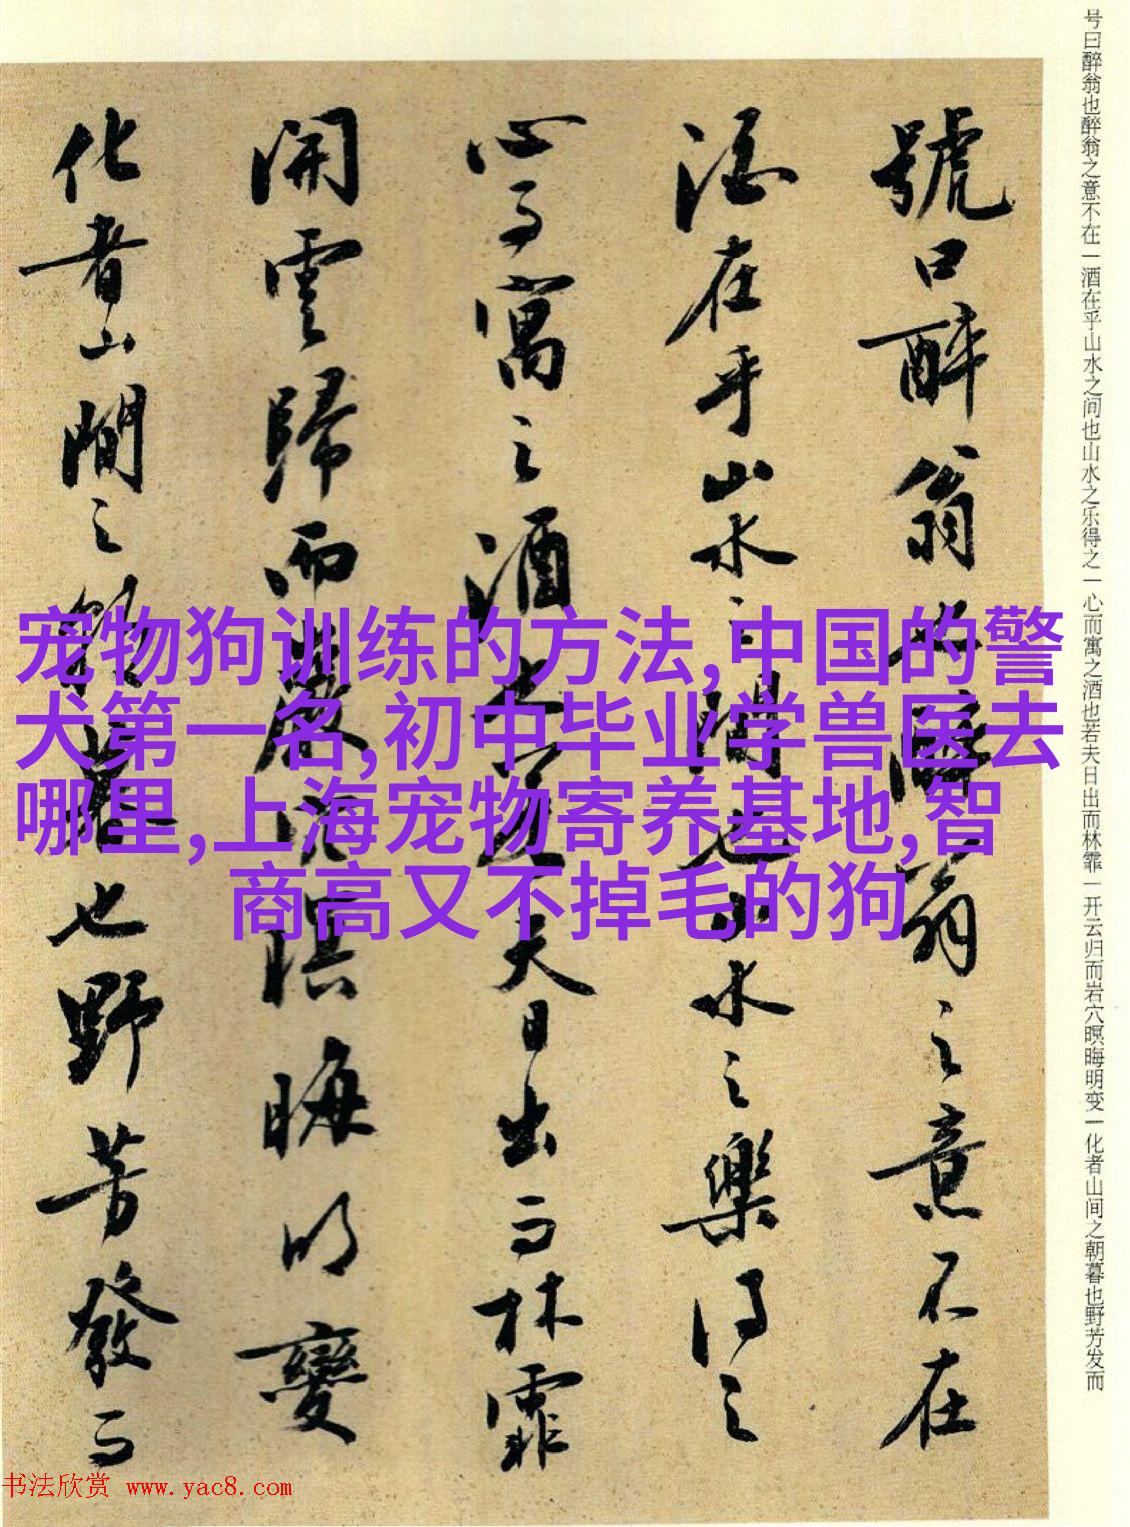 号曰醉翁也醉翁之意不在一酒在乎山水之间也山水之乐得之一心而寓之酒也若夫日出而林霏一开云归而岩穴暝晦明变一化者山间之朝暮也野芳发而
號曰醉翁也醉翁之意不在
酒在乎山水之間也山水之樂得之
心而寓之酒也若夫日出而林霏
開雲歸而巖穴暝晦明變
化者山間之朝暮也野芳發而
宠物狗训练的方法,中国的警
犬第一名,初中毕业学兽医去
哪里,上海宠物寄养基地,智
商高又不掉毛的狗
书法欣赏 www.yac8.com